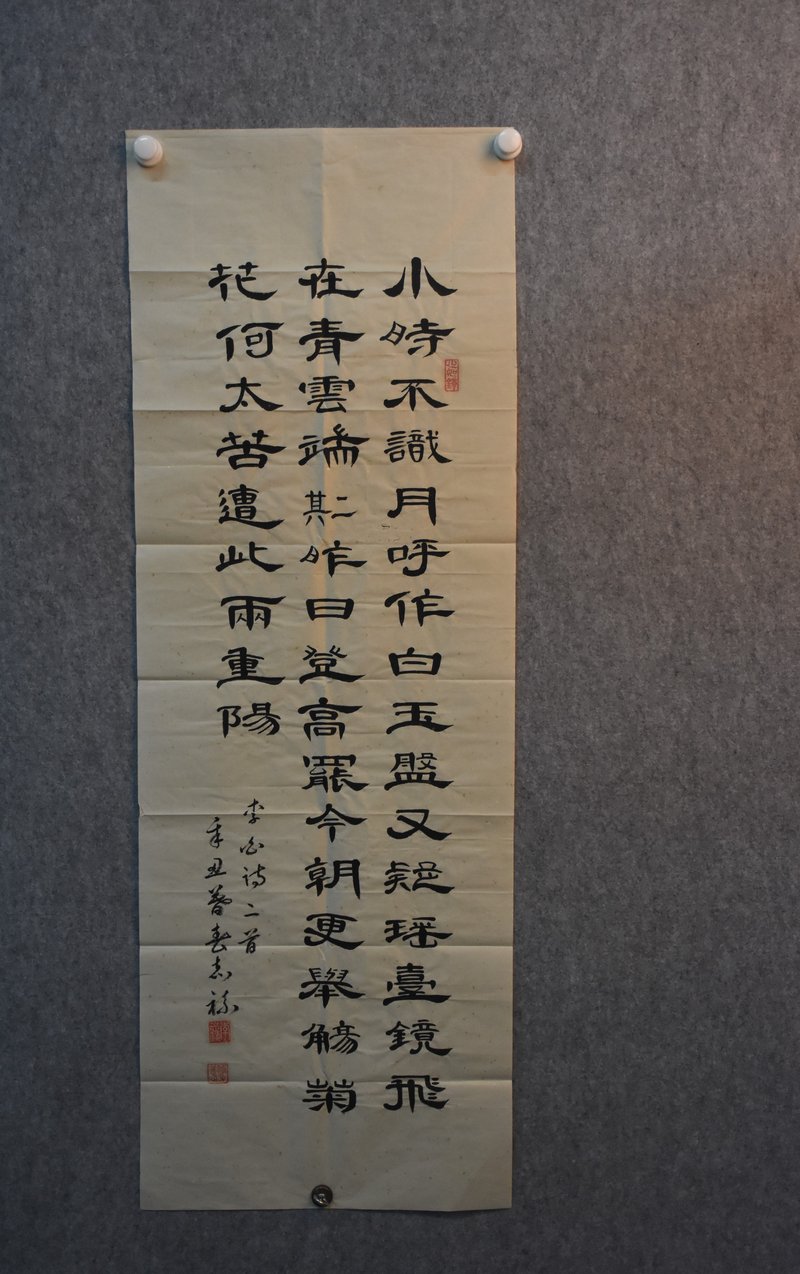 小時不識月呼作白玉盤又疑瑶臺鏡飛
在青雲端其二昨日登高罷今朝更舉觴菊
花何太苦遭此兩重陽
李白詩二首
辛丑暮春志禄